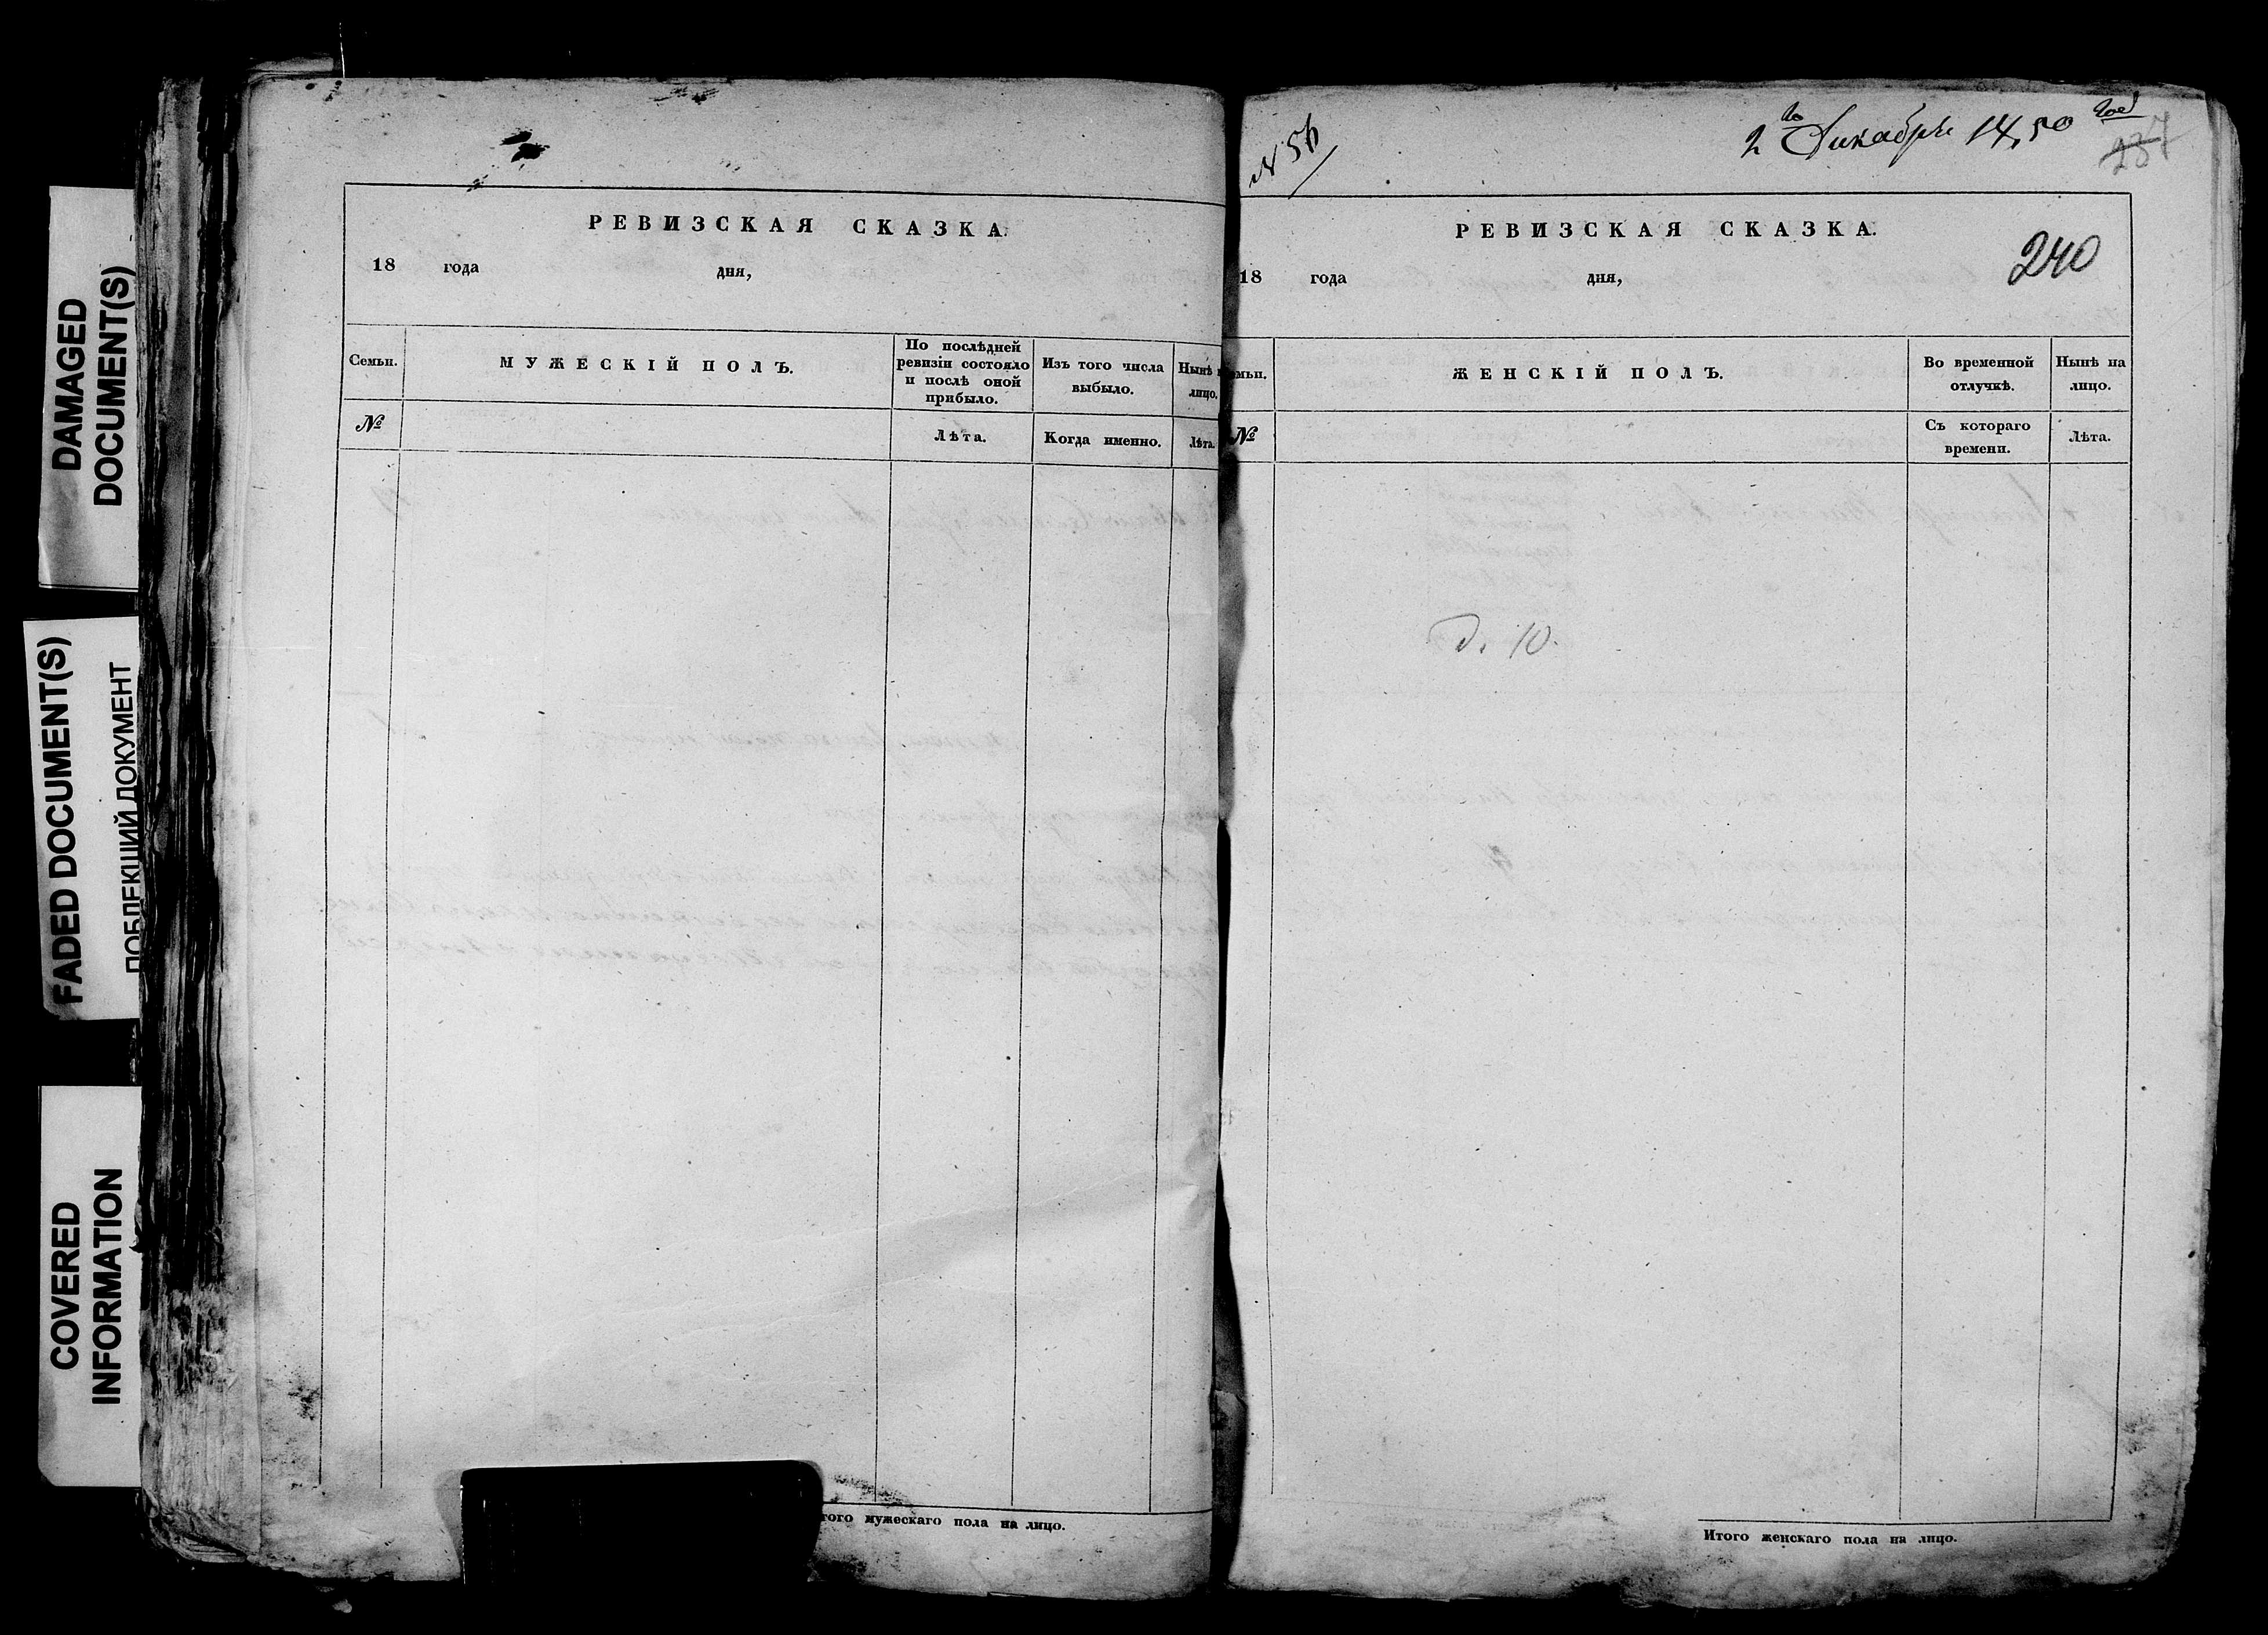 DAMAGED
DOCUMENT(S)
FADED DOCUMENT(S)
ПОБЛЕКШИЙ ДОКУМЕНТ
COVERED
INFORMATION
РЕВИЗСКАЯ СКАЗКА.
18 года дня,
Семьи.
МУЖЕСКІЙ ПОЛЪ.
По послѣдней
ревизіи состояло
и послѣ оной
прибыло.
Изъ того числа
выбыло.
Нынѣ
лицо.
№
Лѣта.
Когда именно.
Лѣта.
того мужескаго пола на лицо.
№ 56
2го Декабря 1850 года
237
РЕВИЗСКАЯ СКАЗКА.
240
18 года дня,
мьи.
ЖЕНСКІЙ ПОЛЪ.
Во временной
отлучкѣ.
Нынѣ на
лицо.
№
Съ котораго
времени.
Лѣта.
д. 10.
Итого женскаго пола на лицо.